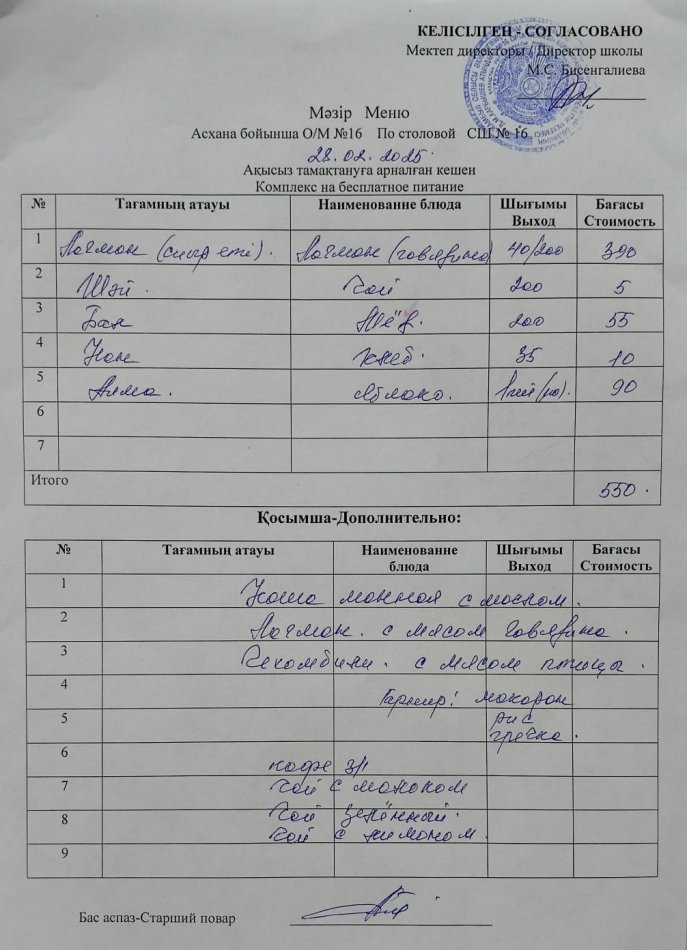 КЕЛІСІЛГЕН - СОГЛАСОВАНО
Мектеп директоры / Директор школы
М.С. Бисенгалиева
Мәзір Меню
Асхана бойынша О/М №16 По столовой СШ № 16
28.02.2025.
Ақысыз тамақтануға арналған кешен
Комплекс на бесплатное питание
№ Тағамның атауы Наименование блюда Шығымы Выход Бағасы Стоимость
1 Лагман (сиыр еті). Лагман (говядина) 40/200 390
2 Шәй. Чай 200 5
3 200 55
4 Нан Хлеб. 35 10
5 Алма. Яблоко. 90
6
7
Итого 550.
Қосымша-Дополнительно:
№ Тағамның атауы Наименование блюда Шығымы Выход Бағасы Стоимость
1 Каша манная с маслом.
2 Лагман. с мясом говядина.
3 с мясом птицы.
4 Гарнир: макарон
5 рис
гречка.
6 кофе 3/1
7 чай с молоком
8 чай зелённый.
чай с лимоном.
9
Бас аспаз-Старший повар